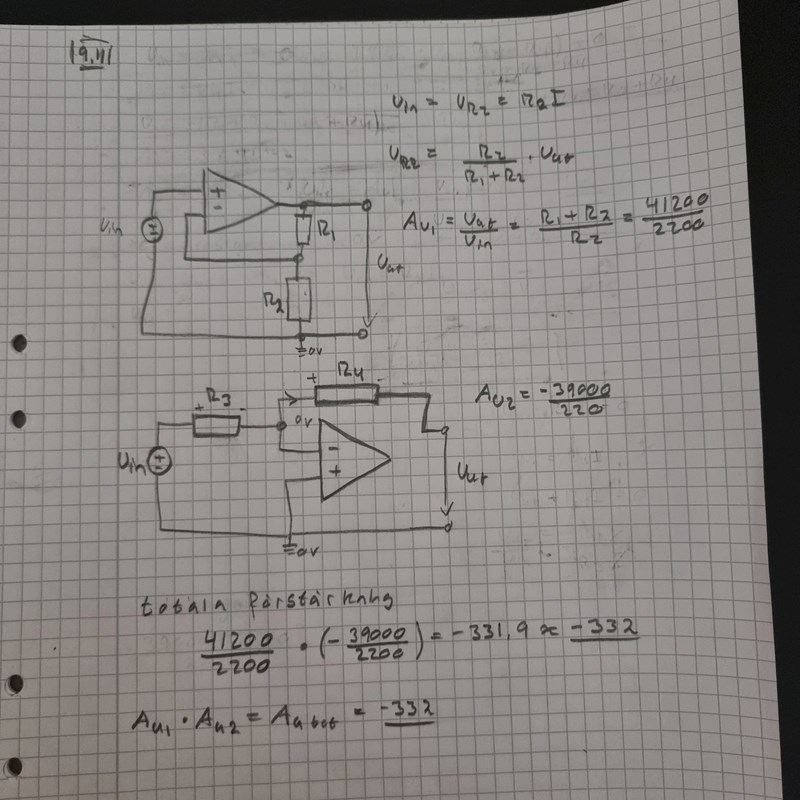 19.11
Uin = UR2 = R2 I
UR2 = R2 / (R1 + R2) · Uut
Au1 = Uut / Uin = (R1 + R2) / R2 = 41200 / 2200
Uin
+
-
R1
R2
Uut
0V
R3
+ -
R4
+ -
0V
Au2 = -39000 / 220
Uin
-
+
Uut
0V
totala förstärkning
41200 / 2200 · (- 39000 / 2200) = -331,9 ≈ -332
Au1 · Au2 = Au tot = -332